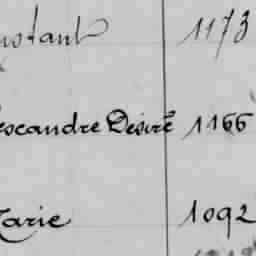 nstant 1173
escandre Désiré 1166
Marie 1092